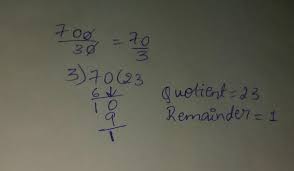 700/30 = 70/3
3)70(23
6↓
10
9
1
Quotient = 23
Remainder = 1